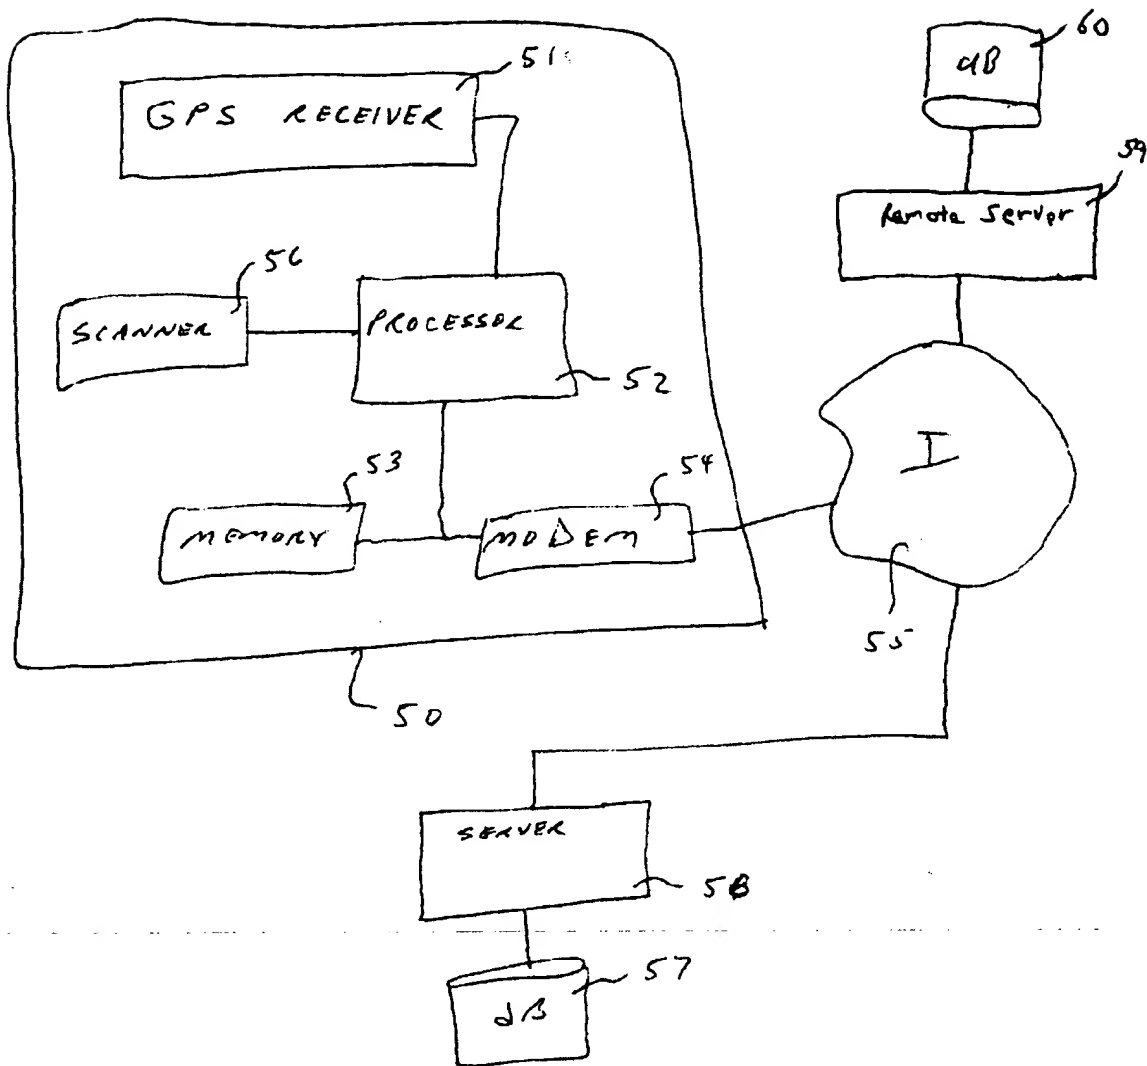 60
dB
51
GPS RECEIVER
59
Remote Server
56
SCANNER
PROCESSOR
52
I
53
54
MEMORY
MODEM
55
50
SERVER
58
57
dB